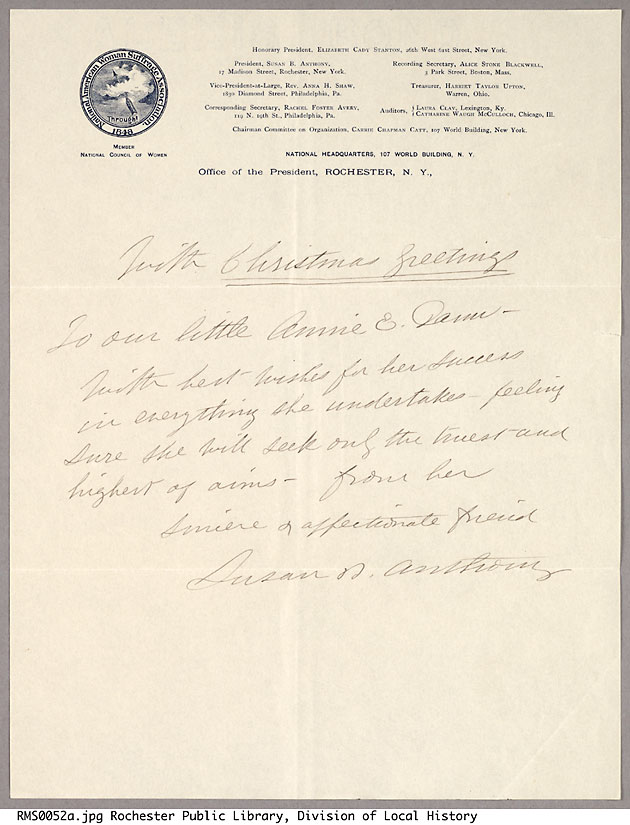 National American Woman Suffrage Association
Through
1848
Member
National Council of Women
Honorary President, Elizabeth Cady Stanton, 26th West 61st Street, New York.
President, Susan B. Anthony,
17 Madison Street, Rochester, New York.
Recording Secretary, Alice Stone Blackwell,
3 Park Street, Boston, Mass.
Vice-President-at-Large, Rev. Anna H. Shaw,
1830 Diamond Street, Philadelphia, Pa.
Treasurer, Harriet Taylor Upton,
Warren, Ohio.
Corresponding Secretary, Rachel Foster Avery,
119 N. 19th St., Philadelphia, Pa.
Auditors, { Laura Clay, Lexington, Ky.
{ Catharine Waugh McCulloch, Chicago, Ill.
Chairman Committee on Organization, Carrie Chapman Catt, 107 World Building, New York.
NATIONAL HEADQUARTERS, 107 WORLD BUILDING, N. Y.
Office of the President, ROCHESTER, N. Y.,
With Christmas greetings
To our little Annie E. Dann –
With best wishes for her success
in everything she undertakes – feeling
sure she will seek only the truest and
highest of aims – from her
sincere & affectionate friend
Susan B. Anthony
RMS0052a.jpg Rochester Public Library, Division of Local History